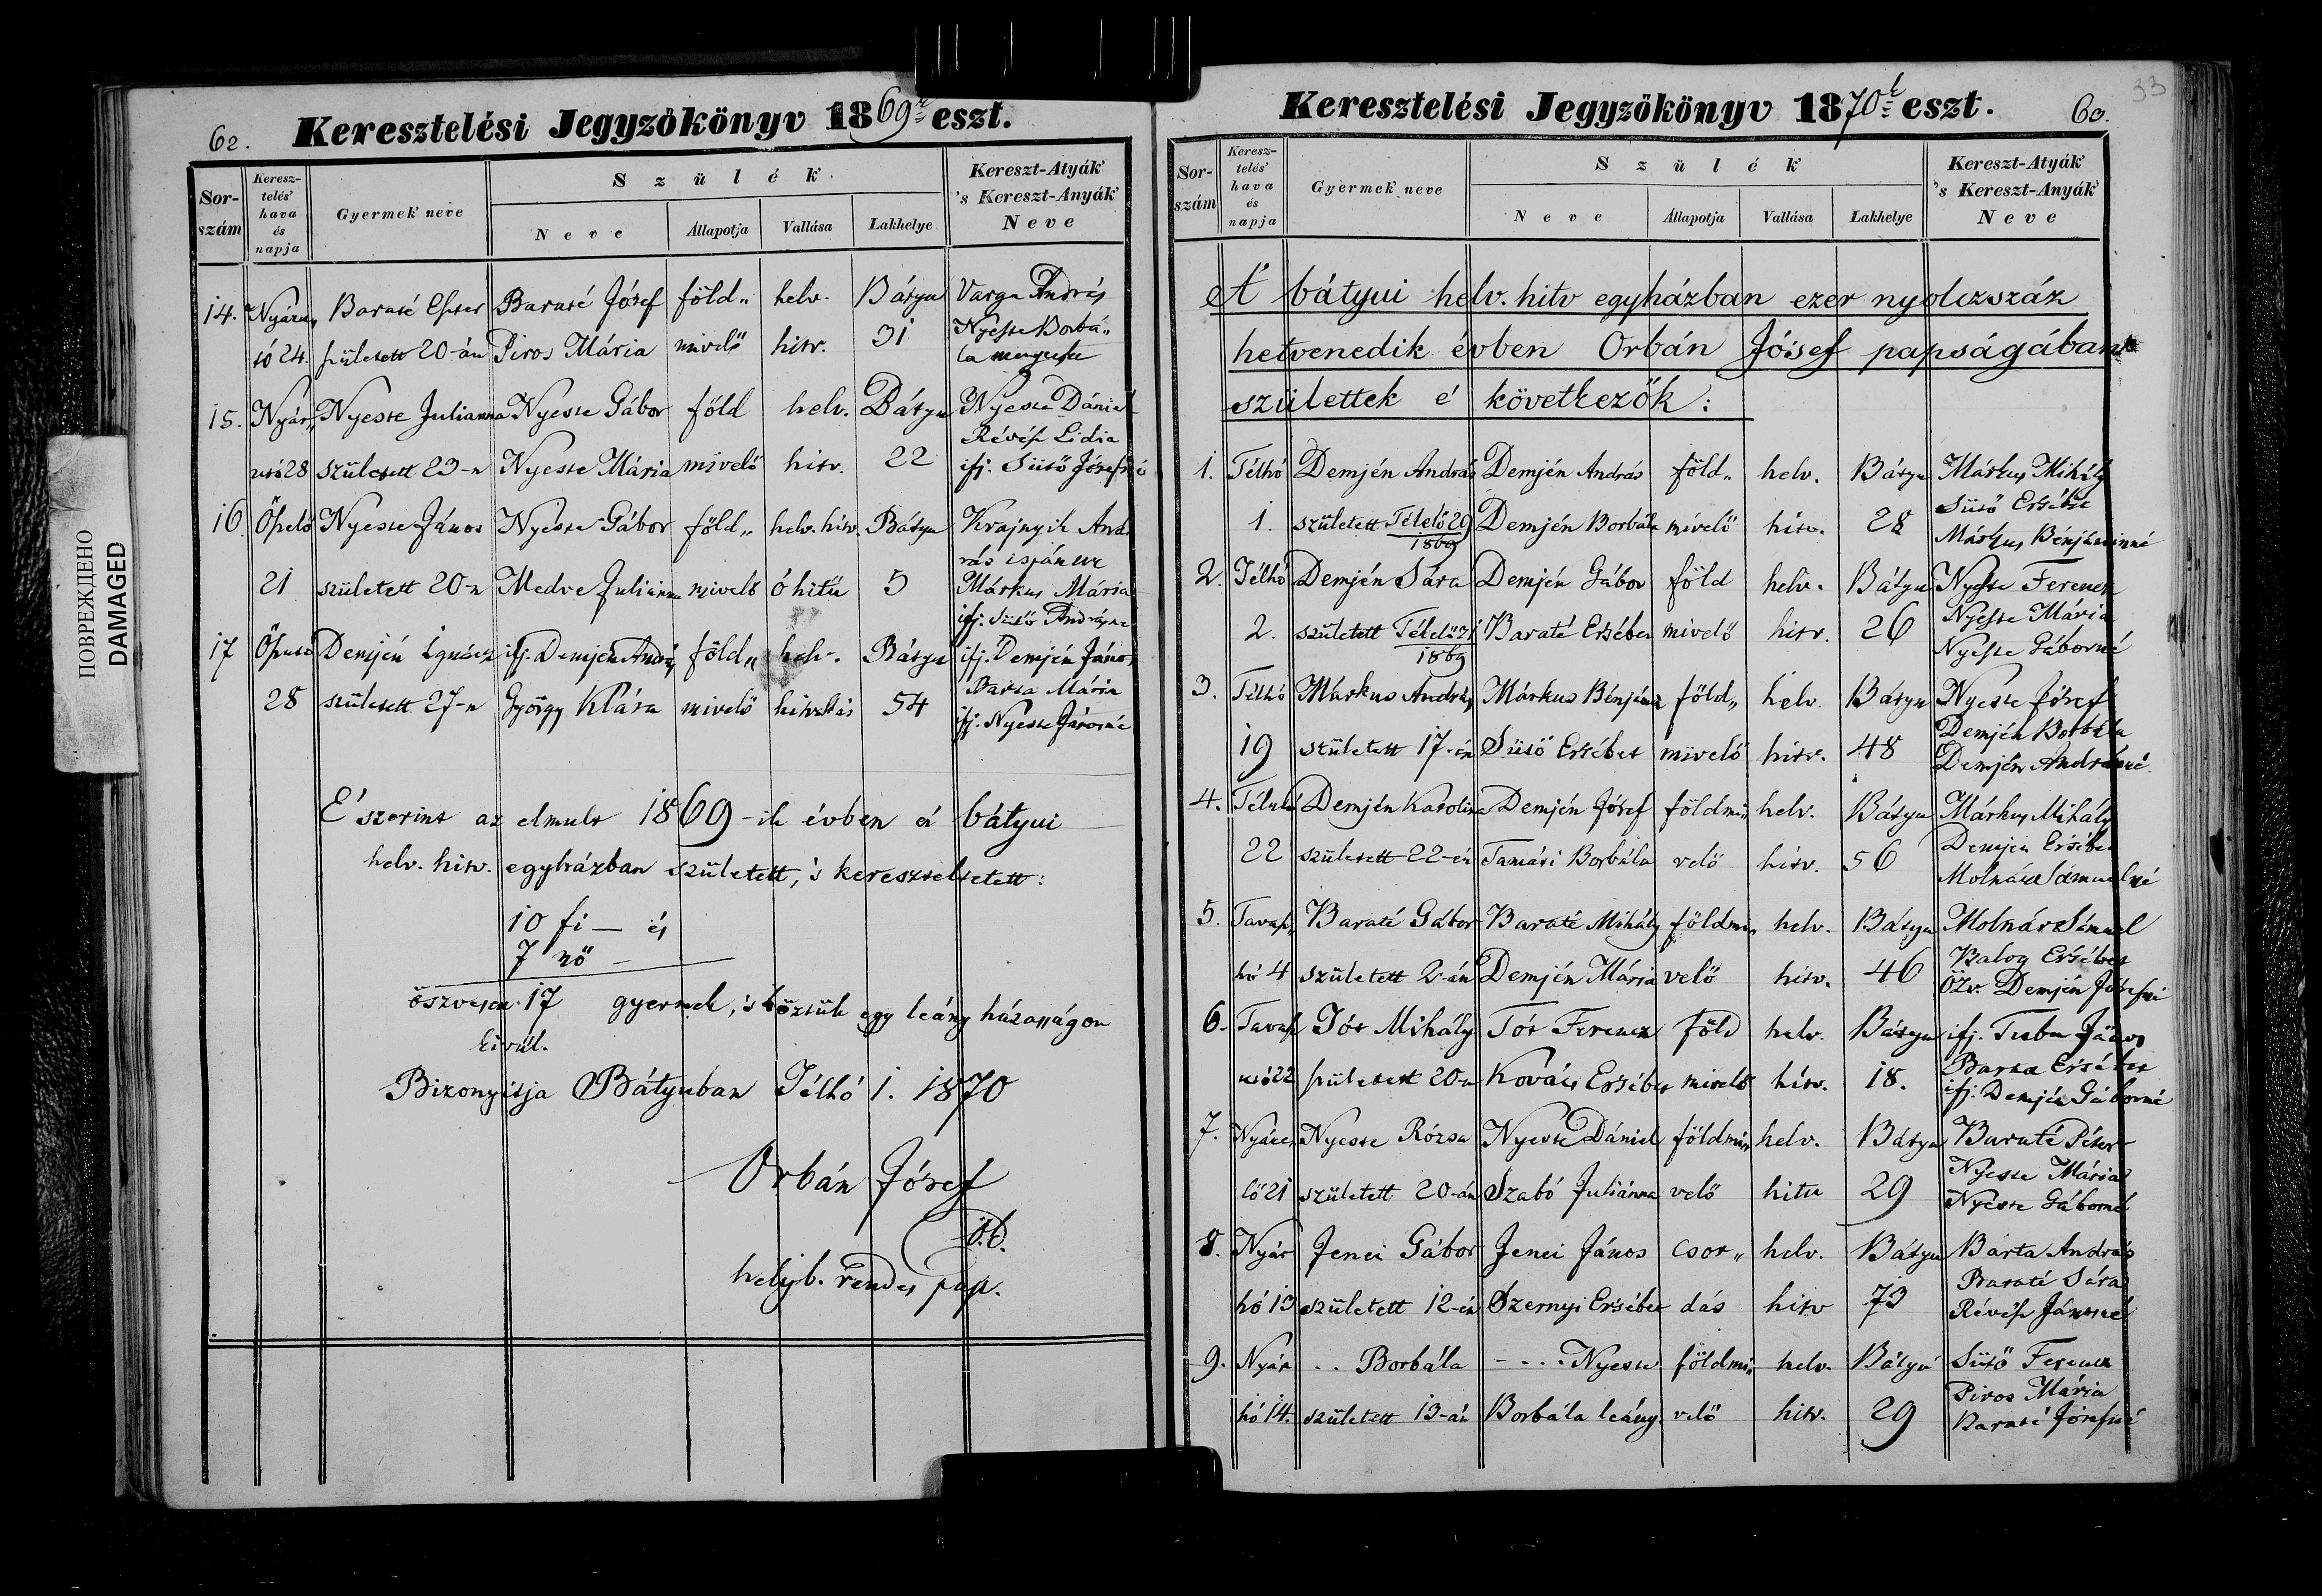 ПОВРЕЖДЕНО
DAMAGED
62.
Keresztelési Jegyzökönyv 1869ik eszt.
Sor-szám
Keresz-telés' hava és napja
Gyermek' neve
Szülék'
Neve
Állapotja
Vallása
Lakhelye
Kereszt-Atyák' 's Kereszt-Anyák' Neve
14. Baraté Eszter Baraté József föld„ helv. Bátyu Varga András
só 24. született 20-án Piros Mária mivelő hitv. 31 Nyeste Borbá„
la
15. Nyár„ Nyeste Julianna Nyeste Gábor föld helv. Bátyu Nyeste Dániel
Révész Lidia
utó 28 született 23-n Nyeste Mária mivelő hitv. 22 ifj. Sütő Józsefné
16 Őszelő Nyeste János Nyeste Gábor föld„ helv. hitv. Bátyu Krajnyik And
rás ispán ur
21 született 20-n Medve Julianna mivelő óhitű 5 Márkus Mária
ifj. Sütő Andrásné
17 Őszutó Demjén Ignácz ifj. Demjén András föld„ helv. Bátyu ifj. Demjén János
Barta Mária
28 született 27-n György Klára mivelő hitvallás 54 ifj. Nyeste Jánosné
E' szerint az elmult 1869-ik évben a' bátyui
helv. hitv. egyházban született, 's kereszteltetett:
10 fi — és
7 nő —
öszvesen 17 gyermek, 's köztük egy leány házasságon
kivül.
Bizonyitja Bátyuban Télhó 1. 1870
Orbán József
helyb. rendes pap.
33
60.
Keresztelési Jegyzökönyv 1870ik eszt.
Sor-szám
Keresz-telés' hava és napja
Gyermek neve
Szülék'
Neve
Állapotja
Vallása
Lakhelye
Kereszt-Atyák' 's Kereszt-Anyák' Neve
A' bátyui helv. hitv egyházban ezer nyolczszáz
hetvenedik évben Orbán József papságában
születtek e' következők:
1. Télhó Demjén András Demjén András föld„ helv. Bátyu Márkus Mihály
Sütő Ersébet
1. született Télelő 29 1869 Demjén Borbála mivelő hitv. 28 Márkus Bénjáminné
2. Télhó Demjén Sára Demjén Gábor föld helv. Bátyu Nyeste Ferencz
Nyeste Mária
2. született Télelő 31 1869 Baraté Ersébet mivelő hitv. 26 Nyeste Gáborné
3. Télhó Márkus András Márkus Bénjámin föld„ helv. Bátyu Nyeste József
Demjén Borbála
19 született 17-én Sütő Ersébet mivelő hitv. 48 Demjén Andrásné
4. Télutó Demjén Karolina Demjén József földmi„ helv. Bátyu Márkus Mihály
Demjén Ersébet
22 született 22-én Tamási Borbála velő hitv. 56 Molnár Sámuelné
5. Tavasz„ Baraté Gábor Baraté Mihály földmi„ helv. Bátyu Molnár Sámuel
Balog Ersébet
hó 4 született 2-án Demjén Mária velő hitv. 46 Özv. Demjén Józsefné
6. Tavasz Tót Mihály Tót Ferencz föld helv. Bátyu ifj. Tuba János
Barta Ersébet
utó 22 született 20-n Kovács Ersébet mivelő hitv. 18. ifj. Demjén Gáborné
7. Nyáre„ Nyeste Rózsa Nyeste Dániel földmi„ helv. Bátyu Baraté Péter
Nyeste Mária
lő 21 született 20-án Szabó Juliánna velő hitv 29 Nyeste Gáborné
8. Nyár Jenei Gábor Jenei János csor„ helv. Bátyu Barta András
Baraté Sára
hó 13 született 12-én Szernyi Ersébet dás hitv 73 Révész Jánosné
9. Nyár .. Borbála - ... Nyeste földmi„ helv. Bátyú Sütő Ferencz
Piros Mária
hó 14. született 13-án Borbála leány velő hitv. 29 Baraté Józsefné